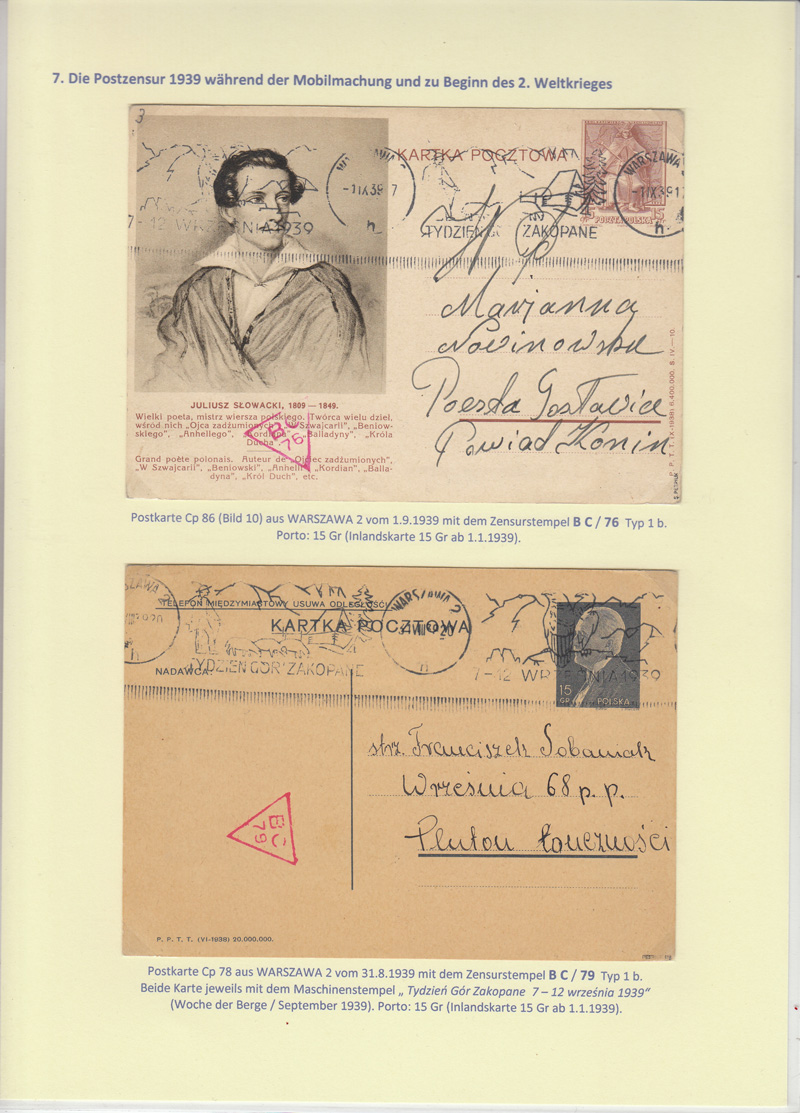 7. Die Postzensur 1939 während der Mobilmachung und zu Beginn des 2. Weltkrieges
3
KARTKA POCZTOWA
WARSZAWA
-1 IX 39 17
h
WARSZAWA
-1 IX 39 17
h
7-12 WRZEŚNIA 1939
TYDZIEŃ GÓR ZAKOPANE
POCZTA POLSKA
15
W.P.
Marjanna
Nowinowska
Poczta Gosławice
Powiat Konin
JULIUSZ SŁOWACKI, 1809 — 1849.
Wielki poeta, mistrz wiersza polskiego. Twórca wielu dzieł,
wśród nich „Ojca zadżumionych", „W Szwajcarii", „Beniow-
skiego", „Anhellego", „Kordiana", „Balladyny", „Króla
Ducha"
Grand poète polonais. Auteur de „Ojciec zadżumionych",
„W Szwajcarii", „Beniowski", „Anhelli", „Kordian", „Balla-
dyna", „Król Duch", etc.
BC
76
P. P. T. T. (X-1938) 6.400.000. S. IV.—10.
Postkarte Cp 86 (Bild 10) aus WARSZAWA 2 vom 1.9.1939 mit dem Zensurstempel B C / 76 Typ 1 b.
Porto: 15 Gr (Inlandskarte 15 Gr ab 1.1.1939).
TELEFON MIĘDZYMIASTOWY USUWA ODLEGŁOŚCI
KARTKA POCZTOWA
WARSZAWA 2
h
NADAWCA:
TYDZIEŃ GÓR ZAKOPANE
7-12 WRZEŚNIA 1939
15
GR
POLSKA
strz. Franciszek Sobaniak
Września 68 p. p.
Pluton Łączności
BC
79
P. P. T. T. (VI-1938) 20.000.000.
Postkarte Cp 78 aus WARSZAWA 2 vom 31.8.1939 mit dem Zensurstempel B C / 79 Typ 1 b.
Beide Karte jeweils mit dem Maschinenstempel „ Tydzień Gór Zakopane 7 – 12 września 1939"
(Woche der Berge / September 1939). Porto: 15 Gr (Inlandskarte 15 Gr ab 1.1.1939).